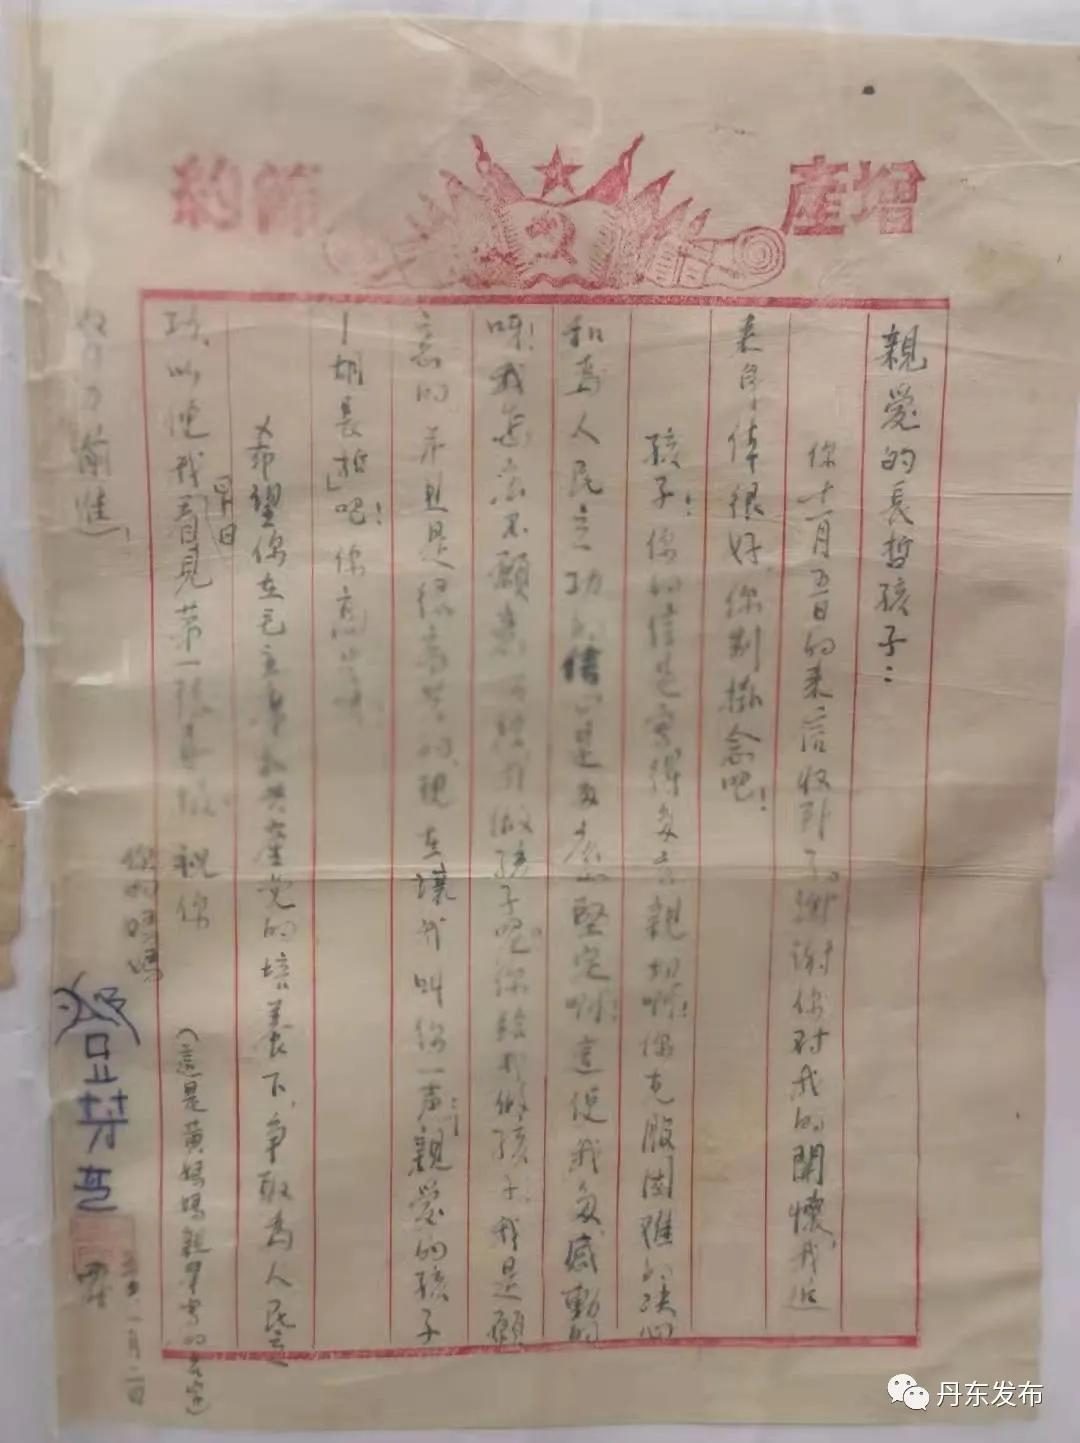 增產
節約
親愛的長哲孩子：
你十一月五日的来信收到了。謝謝你对我的関懷，我近
来身体很好，你别掛念吧！
孩子！你的信是寫得多么親切啊！你克服困难的决心
和為人民立功的信心是多么的堅定啊！這使我多感動的
呀！我怎么不願意你給我做孩子呢。你給我做孩子，我是願
意的，并且是很高兴的，現在讓我叫你一声：親愛的孩子
—胡長哲」吧！你高兴吗
希望你在毛主席和共產党的培养下，争取為人民立
功，以便我早日看見第一張喜報。祝你
努力前進！
你的妈媽
（這是黄媽媽親筆写的名字）
一月二日
丹东发布